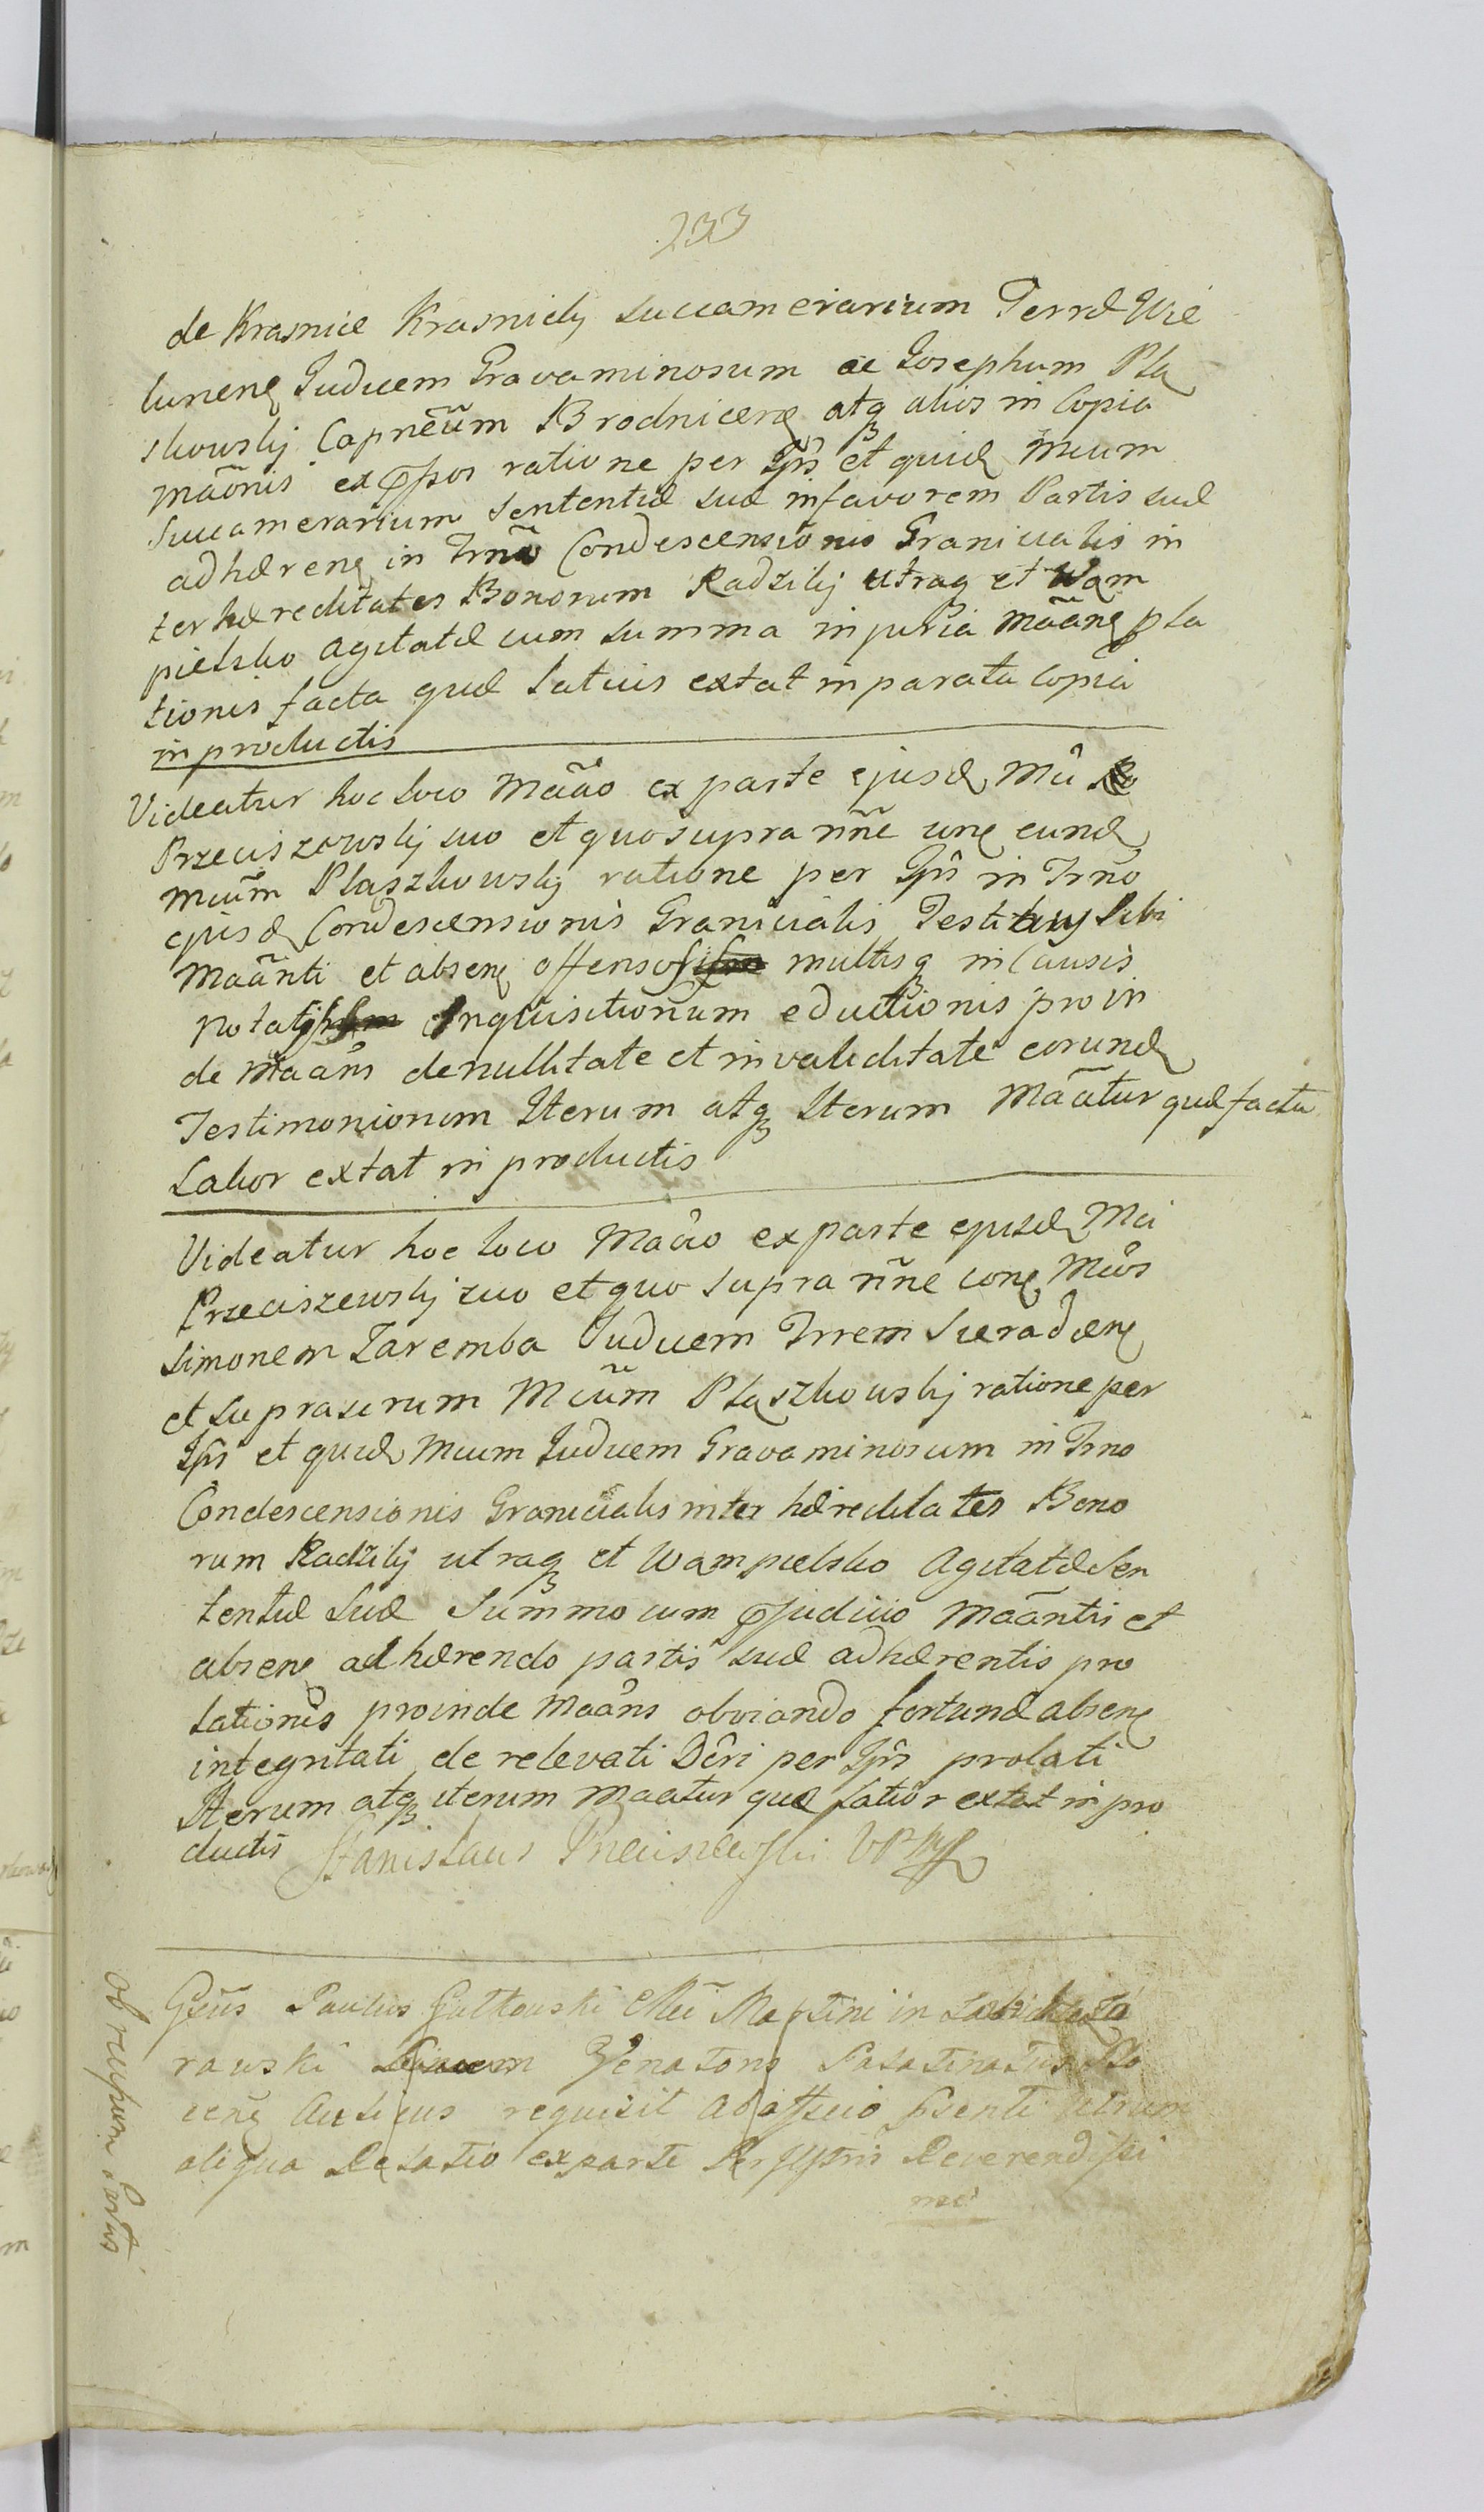 233
de Krasnice Krasnicky Succamerarium Terræ Wie
lunenę Judicem Gravaminosum ac Josephum Plą
skowsky Capneũm Brodnicenę atqꝫ alios in Copia
mãõnis exp̃ssos ratione per Ip̃s et quidę Mcum
Succamerarium Sententiæ suæ in favorem Partis suæ
adhærenę in Trñõ Condescensionis Granicialis in
ter hæreditates Bonorum Radziky utraqꝫ et Wąm
pielsko Agitatæ cum Summa injuria Mããnę pla
tionis facta quæ Latius extat in parata Copia
in productis
Videatur hoc loco Mããõ ex parte ejusdę Mci
Przeciszewsky suo et quo supra nñe conę eundę
Mcum Pląszkowsky ratione per Ip̃s in Trñõ
ejusdę Condescensionis Granicialis Sibi
Mããnti et absenę offensos multisqꝫ in Causis
Inquisitionum eductionis proin
de Mããns de nullitate et invaliditate eorundę
Testimoniorum Iterum atqꝫ Iterum Mããtur quæ facta
Latior extat in productis
Videatur hoc loco Mããõ ex parte ejusdę Mci
Przeciszewsky suo et quo supra nñe conę Mcos
Simonem Zaremba Judicem Trrem Sieradienę
et suprascrum Mcũm Pląszkowsky ratione per
Ip̃s et quidę Mcum Judicem Gravaminosum in Trno
Condescensionis Granicialis inter hæreditates Bono
rum Radziky utraqꝫ et Wąmpielsko Agitatæ Sen
tentiæ Suæ Summo cum p̃judicio Mããntis et
absenę adhærendo partis suæ adhærentis pro
lationis proinde Mããns obviando fortunæ absenę
integritati de relevati Dc̃ri per Ip̃s prolati
Iterum atqꝫ iterum Maatur quæ Latior extat in pro
ductis Stanislaus Przeciszewski VPmp
Gẽũs Paulus Gutkowski Mci Martini in
rawski Venatoris Palatinatus Plo
cenę Aulicus requisit ad Officio p̃senti utrum
aliqua Relatio ex parte Perillustris Reverendissi
mi
Ob recipum Partis